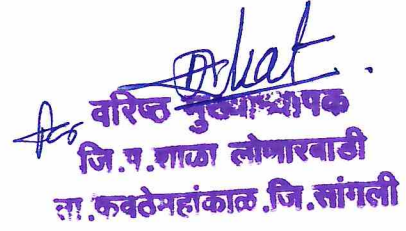 वरिष्ठ मुख्याध्यापक
जि.प.शाळा लोणारवाडी
ता.कवठेमहांकाळ.जि.सांगली